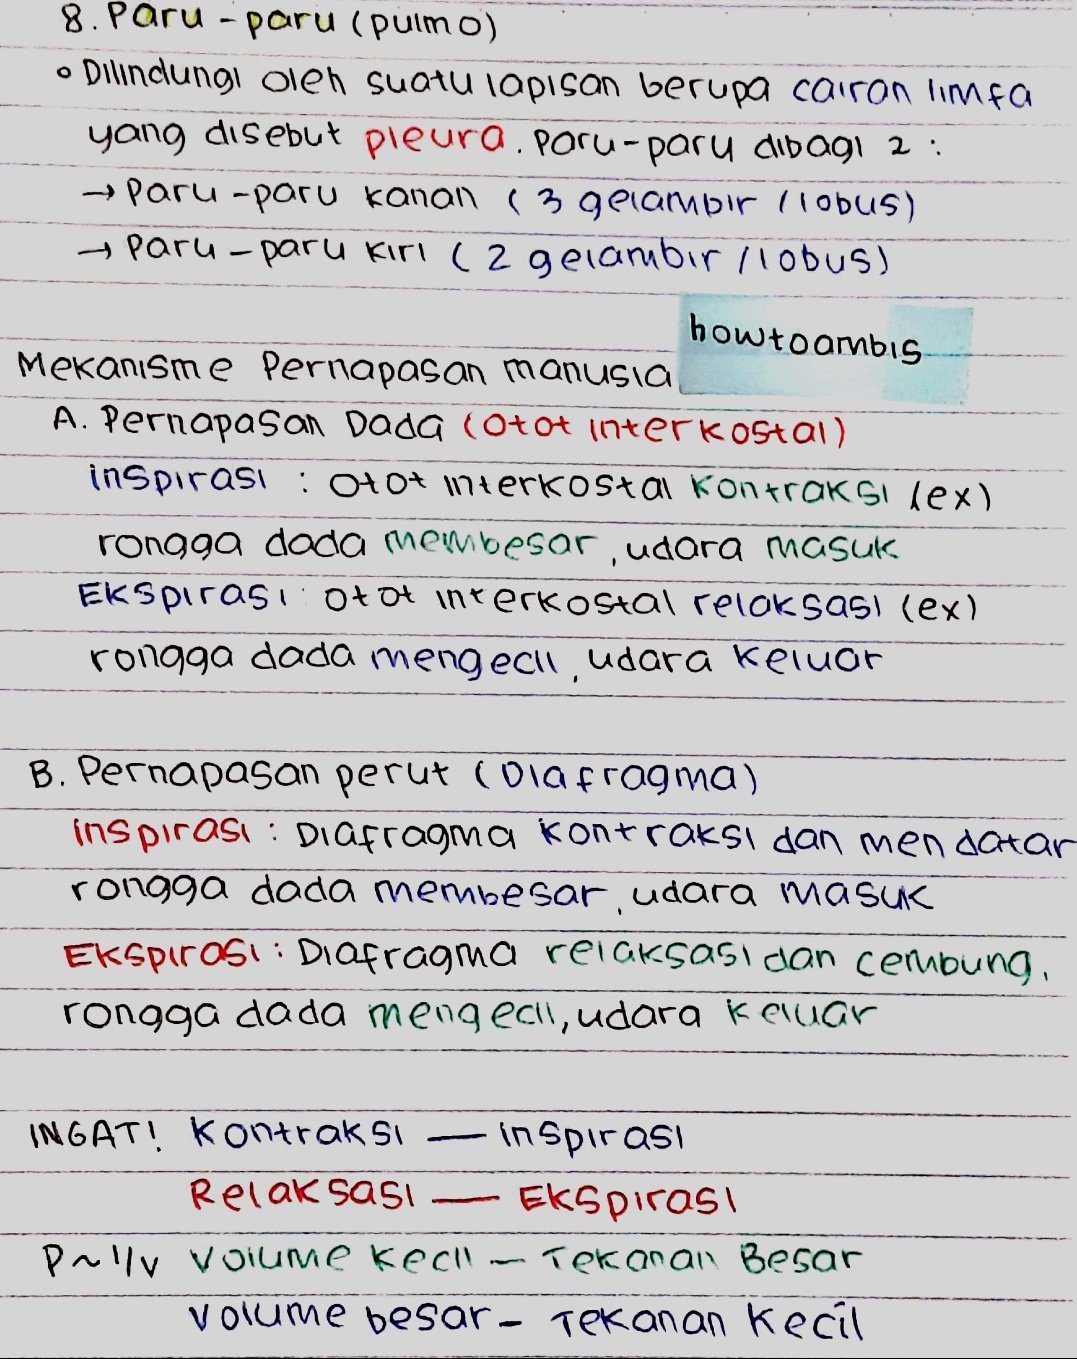 8. Paru - paru (pulmo)
• Dilindungi oleh suatu lapisan berupa cairan limfa
yang disebut pleura. Paru-paru dibagi 2 :
→ Paru - paru kanan ( 3 gelambir / lobus)
→ Paru - paru kiri ( 2 gelambir / lobus)
howtoambis
Mekanisme Pernapasan manusia
A. Pernapasan Dada (Otot interkostal)
inspirasi : Otot interkostal kontraksi (ex)
rongga dada membesar, udara masuk
Ekspirasi : otot interkostal relaksasi (ex)
rongga dada mengecil, udara keluar
B. Pernapasan perut (Diafragma)
inspirasi : Diafragma kontraksi dan mendatar
rongga dada membesar, udara masuk
Ekspirasi : Diafragma relaksasi dan cembung,
rongga dada mengecil, udara keluar
INGAT! Kontraksi — inspirasi
Relaksasi — Ekspirasi
P ~ 1/v Volume kecil — Tekanan Besar
Volume besar - Tekanan kecil